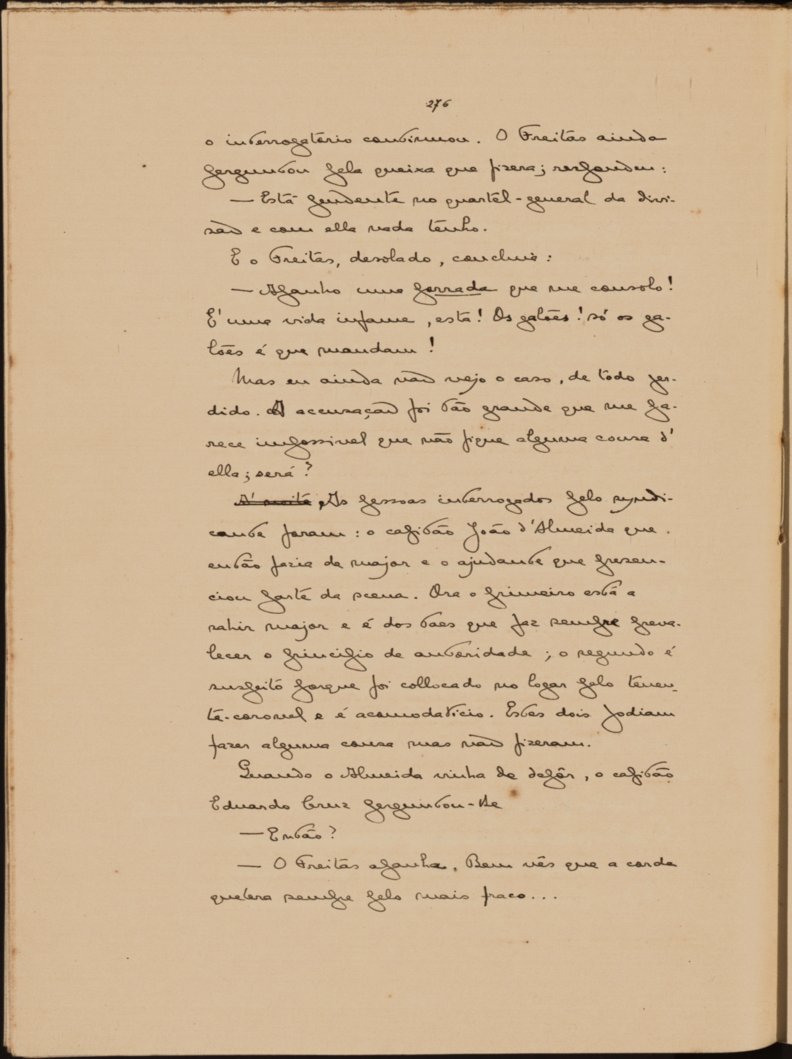 276
o interrogatorio continuou. O Freitas ainda
perguntou pela queixa que fizera; respondeu:
— Está pendente no quartel-general da divi-
são e com ella nada tenho.
E o Freitas, desolado, concluiu:
— Apanho uma porrada que me consolo!
E' uma vida infame, esta! Os galões! só os ga-
lões é que mandam!
Mas eu ainda não vejo o caso, de todo per-
dido. A accusação foi tão grande que me pa-
rece impossivel que não fique alguma cousa d'
ella; será?
A' noite As pessoas interrogados pelo syndi-
cante foram: o capitão João d'Almeida que
então fazia de major e o ajudante que presen-
ciou parte da scena. Ora o primeiro está a
sahir major e é dos taes que faz sempre preva-
lecer o principio de autoridade; o segundo é
suspeito porque foi collocado no logar pelo tenen-
te-coronel e é acomodaticio. Estes dois podiam
fazer alguma cousa mas não fizeram.
Quando o Almeida vinha de depôr, o capitão
Eduardo Cruz perguntou-lhe
— Então?
— O Freitas apanha. Bem vês que a corda
quebra sempre pelo mais fraco...